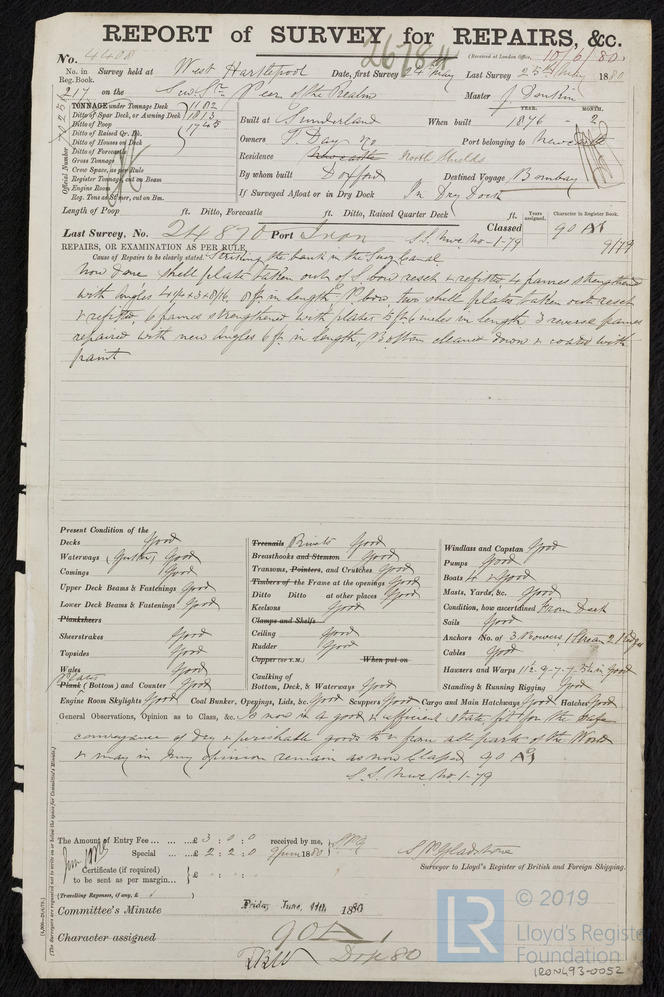 REPORT of SURVEY for REPAIRS, &c.
No. 4408
26784
(Received at London Office, 10/6/80)
No. in Reg. Book.
Survey held at West Hartlepool Date, first Survey 24th May Last Survey 25th May 1880
217 on the Screw Str Peer of the Realm Master J. Jenkin
TONNAGE under Tonnage Deck 1182
Ditto of Spar Deck, or Awning Deck 1813
Ditto of Poop 1745
Ditto of Raised Qr. Dk.
Ditto of Houses on Deck
Ditto of Forecastle
Gross Tonnage
Crew Space, as per Rule
Register Tonnage, cut on Beam
Engine Room
Reg. Tons as Stmer, cut on Bm.
Official Number
Built at Sunderland When built YEAR. 1876 MONTH. 2
Owners T. Day & Co Port belonging to Newcastle
Residence Newcastle North Shields
By whom built Doxford Destined Voyage Bombay
If Surveyed Afloat or in Dry Dock In Dry Dock
Length of Poop ft. Ditto, Forecastle ft. Ditto, Raised Quarter Deck ft.
Years assigned. Character in Register Book.
Last Survey, No. 24870 Port Iron Classed 90 A1
S.S. Nwc. No. 1-79 9/79
REPAIRS, OR EXAMINATION AS PER RULE,
Cause of Repairs to be clearly stated. Striking the bank in the Suez Canal
Now done shell plate taken out of S. bow reset & refitted 4 frames strengthened
with angles 8 ft in length, P. bow, two shell plates taken out reset
& refitted, 6 frames strengthened with plates 5 ft 6 inches in length 3 reverse frames
repaired with new angles 6 ft in length, Bottom cleaned down & coated with
paint
Present Condition of the
Decks Good
Waterways (Gutter) Good
Comings Good
Upper Deck Beams & Fastenings Good
Lower Deck Beams & Fastenings Good
Planksheers
Sheerstrakes Good
Topsides Good
Wales Good
Plates
Plank (Bottom) and Counter Good
Treenails Rivets Good
Breasthooks and Stemson Good
Transoms, Pointers, and Crutches Good
Timbers of the Frame at the openings Good
Ditto Ditto at other places Good
Keelsons Good
Clamps and Shelfs
Ceiling Good
Rudder Good
Copper (or Y.M.) When put on
Caulking of
Bottom, Deck, & Waterways Good
Windlass and Capstan Good
Pumps Good
Boats 4 Good
Masts, Yards, &c. Good
Condition, how ascertained From Deck
Sails Good
Anchors No. of 3 Bowers, 1 Stream 2 Kedges
Cables Good
Hawsers and Warps Good
Standing & Running Rigging Good
Engine Room Skylights Good Coal Bunker, Openings, Lids, &c. Good Scuppers Good Cargo and Main Hatchways Good Hatches Good
General Observations, Opinion as to Class, &c. Is now in a good & efficient state, fit for the safe
conveyance of dry & perishable goods to & from all parts of the World
& may in my opinion remain as now Classed 90 A1
S.S. Nwc. No. 1-79
The Amount of Entry Fee ... ... ...£ 3 : 0 : 0 received by me,
Special ... ...£ 2 : 2 : 0 9 June 1880
Certificate (if required)
to be sent as per margin...
(Travelling Expenses, if any, £
S W Gladstone
Surveyor to Lloyd's Register of British and Foreign Shipping.
Committee's Minute Friday, June, 11th, 1880
Character assigned 90 A 1
(The Surveyors are requested not to write on or below the space for Committee's Minute.)
© 2019
LR
Lloyd's Register
Foundation
IRON493-0052